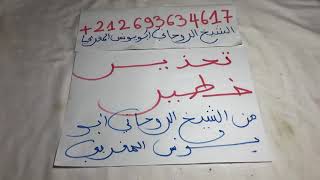 +212693634617
الشيخ الروحاني ابو يونس المغربي
تحذير
خطير
من الشيخ الروحاني ابو
يونس المغربي